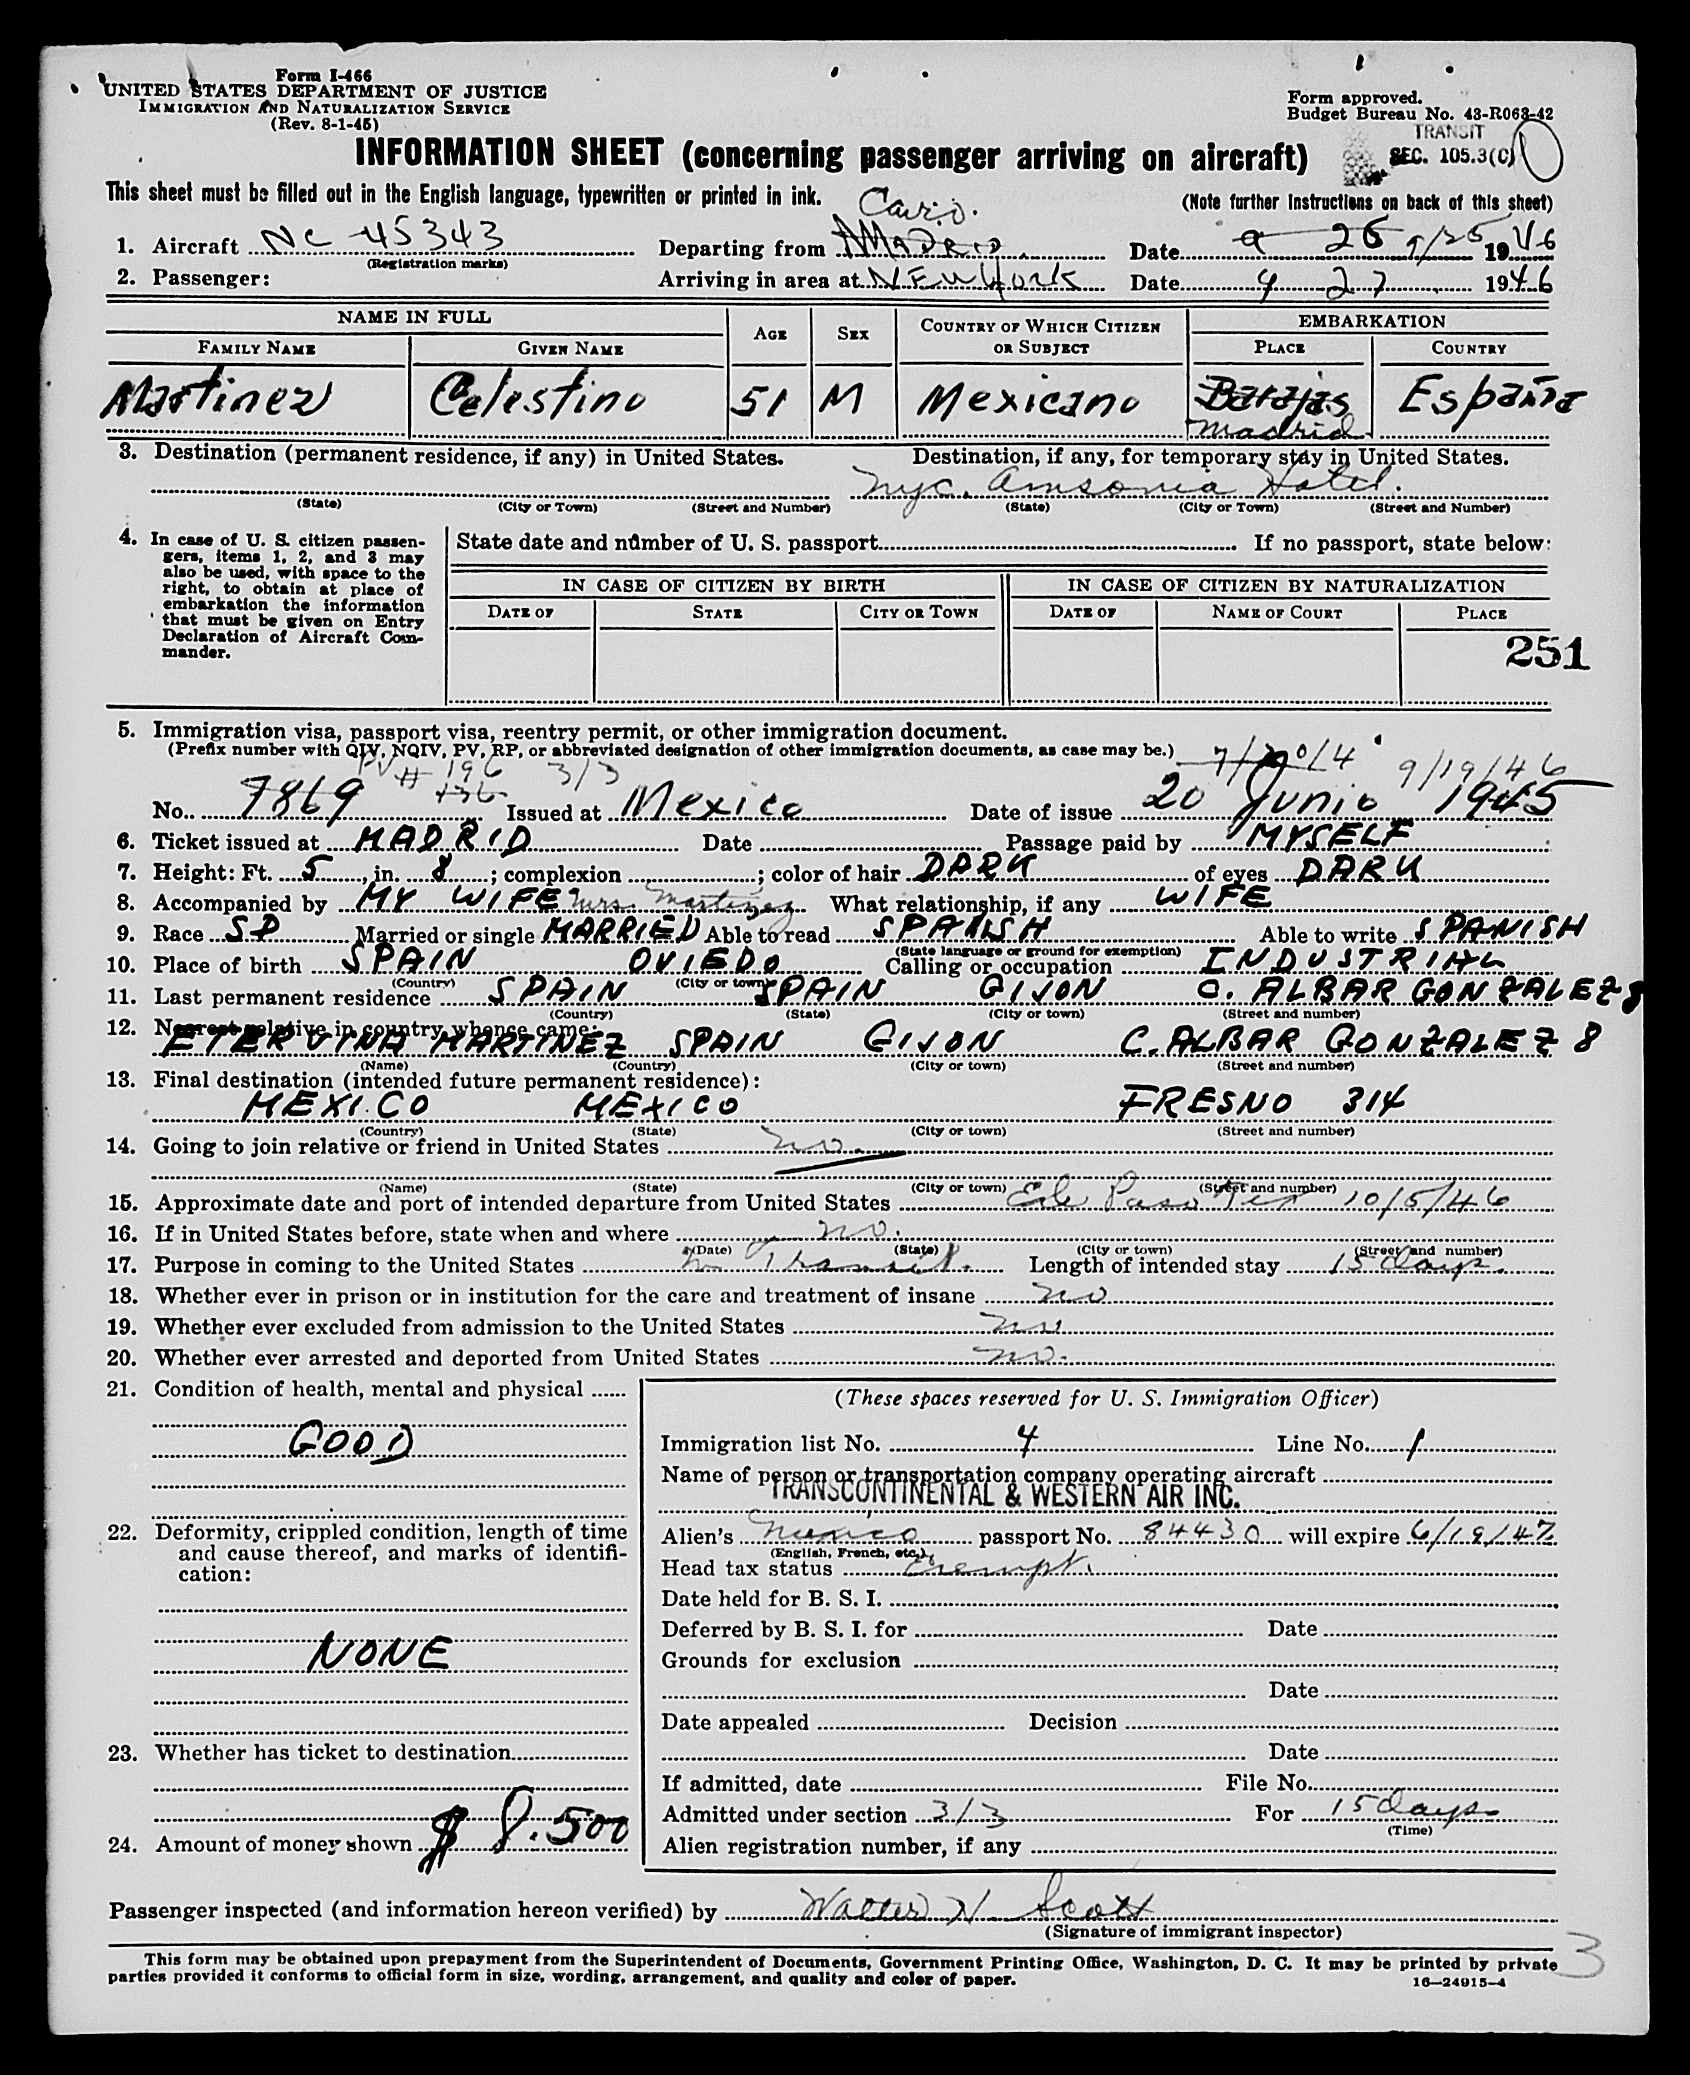 Form I-466
UNITED STATES DEPARTMENT OF JUSTICE
IMMIGRATION AND NATURALIZATION SERVICE
(Rev. 8-1-45)
Form approved.
Budget Bureau No. 43-R063-42
TRANSIT
SEC. 105.3(C)
INFORMATION SHEET (concerning passenger arriving on aircraft)
This sheet must be filled out in the English language, typewritten or printed in ink.
(Note further instructions on back of this sheet)
Cairo.
1. Aircraft NC 45343 Departing from MADRID Date 9 26 9/25 1946
(Registration marks)
2. Passenger: Arriving in area at NEW YORK Date 9 27 1946
NAME IN FULL AGE SEX COUNTRY OF WHICH CITIZEN OR SUBJECT EMBARKATION
FAMILY NAME GIVEN NAME PLACE COUNTRY
Martinez Celestino 51 M Mexicano Barajas España
Madrid
3. Destination (permanent residence, if any) in United States. Destination, if any, for temporary stay in United States.
NYC. Ansonia Hotel.
(State) (City or Town) (Street and Number) (State) (City or Town) (Street and Number)
4. In case of U. S. citizen passengers, items 1, 2, and 3 may also be used, with space to the right, to obtain at place of embarkation the information that must be given on Entry Declaration of Aircraft Commander.
State date and number of U. S. passport If no passport, state below:
IN CASE OF CITIZEN BY BIRTH IN CASE OF CITIZEN BY NATURALIZATION
DATE OF STATE CITY OR TOWN DATE OF NAME OF COURT PLACE
251
5. Immigration visa, passport visa, reentry permit, or other immigration document.
(Prefix number with QIV, NQIV, PV, RP, or abbreviated designation of other immigration documents, as case may be.)
PV # 196 3/3 9/19/46
136
No. 7869 Issued at Mexico Date of issue 20 Junio 1945
6. Ticket issued at MADRID Date Passage paid by MYSELF
7. Height: Ft. 5, in. 8; complexion ; color of hair DARK of eyes DARK
8. Accompanied by MY WIFE Mrs. Martinez What relationship, if any WIFE
9. Race SP Married or single MARRIED Able to read SPANISH Able to write SPANISH
(State language or ground for exemption)
10. Place of birth SPAIN OVIEDO Calling or occupation INDUSTRIAL
(Country) (City or town)
11. Last permanent residence SPAIN SPAIN GIJON C. ALBAR GONZALEZ 8
(Country) (State) (City or town) (Street and number)
12. Nearest relative in country whence came:
ETERVINA MARTINEZ SPAIN GIJON C. ALBAR GONZALEZ 8
(Name) (Country) (City or town) (Street and number)
13. Final destination (intended future permanent residence):
MEXICO MEXICO FRESNO 314
(Country) (State) (City or town) (Street and number)
14. Going to join relative or friend in United States no.
(Name) (State) (City or town) (Street and number)
15. Approximate date and port of intended departure from United States El Paso Tex 10/5/46
16. If in United States before, state when and where no.
(Date) (State) (City or town) (Street and number)
17. Purpose in coming to the United States In Transit. Length of intended stay 15 days.
18. Whether ever in prison or in institution for the care and treatment of insane no
19. Whether ever excluded from admission to the United States no
20. Whether ever arrested and deported from United States no.
21. Condition of health, mental and physical
GOOD
22. Deformity, crippled condition, length of time and cause thereof, and marks of identification:
NONE
23. Whether has ticket to destination
24. Amount of money shown $ 8.500
(These spaces reserved for U. S. Immigration Officer)
Immigration list No. 4 Line No. 1
Name of person or transportation company operating aircraft
TRANSCONTINENTAL & WESTERN AIR INC.
Alien's Mexico passport No. 84430 will expire 6/19/47
(English, French, etc.)
Head tax status Exempt.
Date held for B. S. I.
Deferred by B. S. I. for Date
Grounds for exclusion
Date
Date appealed Decision
Date
If admitted, date File No.
Admitted under section 3/3 For 15 days
(Time)
Alien registration number, if any
Passenger inspected (and information hereon verified) by Walter N. Scott
(Signature of immigrant inspector)
3
This form may be obtained upon prepayment from the Superintendent of Documents, Government Printing Office, Washington, D. C. It may be printed by private
parties provided it conforms to official form in size, wording, arrangement, and quality and color of paper.
16—24915-4